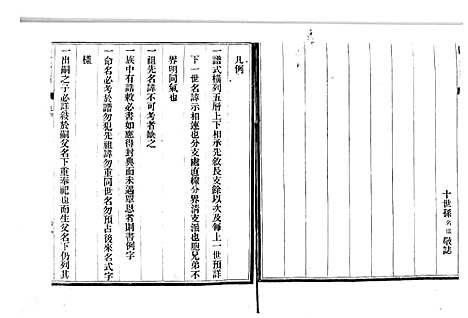 十世孫名儒敬誌
凡例
一譜式橫列五層上下相承先敘長支餘以次及每上一世預詳
下一世名諱示相連也分支處直線分界清支派也胞兄弟不
界明同氣也
一祖先名諱不可考者缺之
一族中有誥敕必書如應得封典而未遇覃恩者則書例字
一命名必考於譜勿犯先祖諱勿重同世名勿預占後來名式字
樣
一出嗣之子必註於嗣父名下重奉祀也而生父名下仍列其